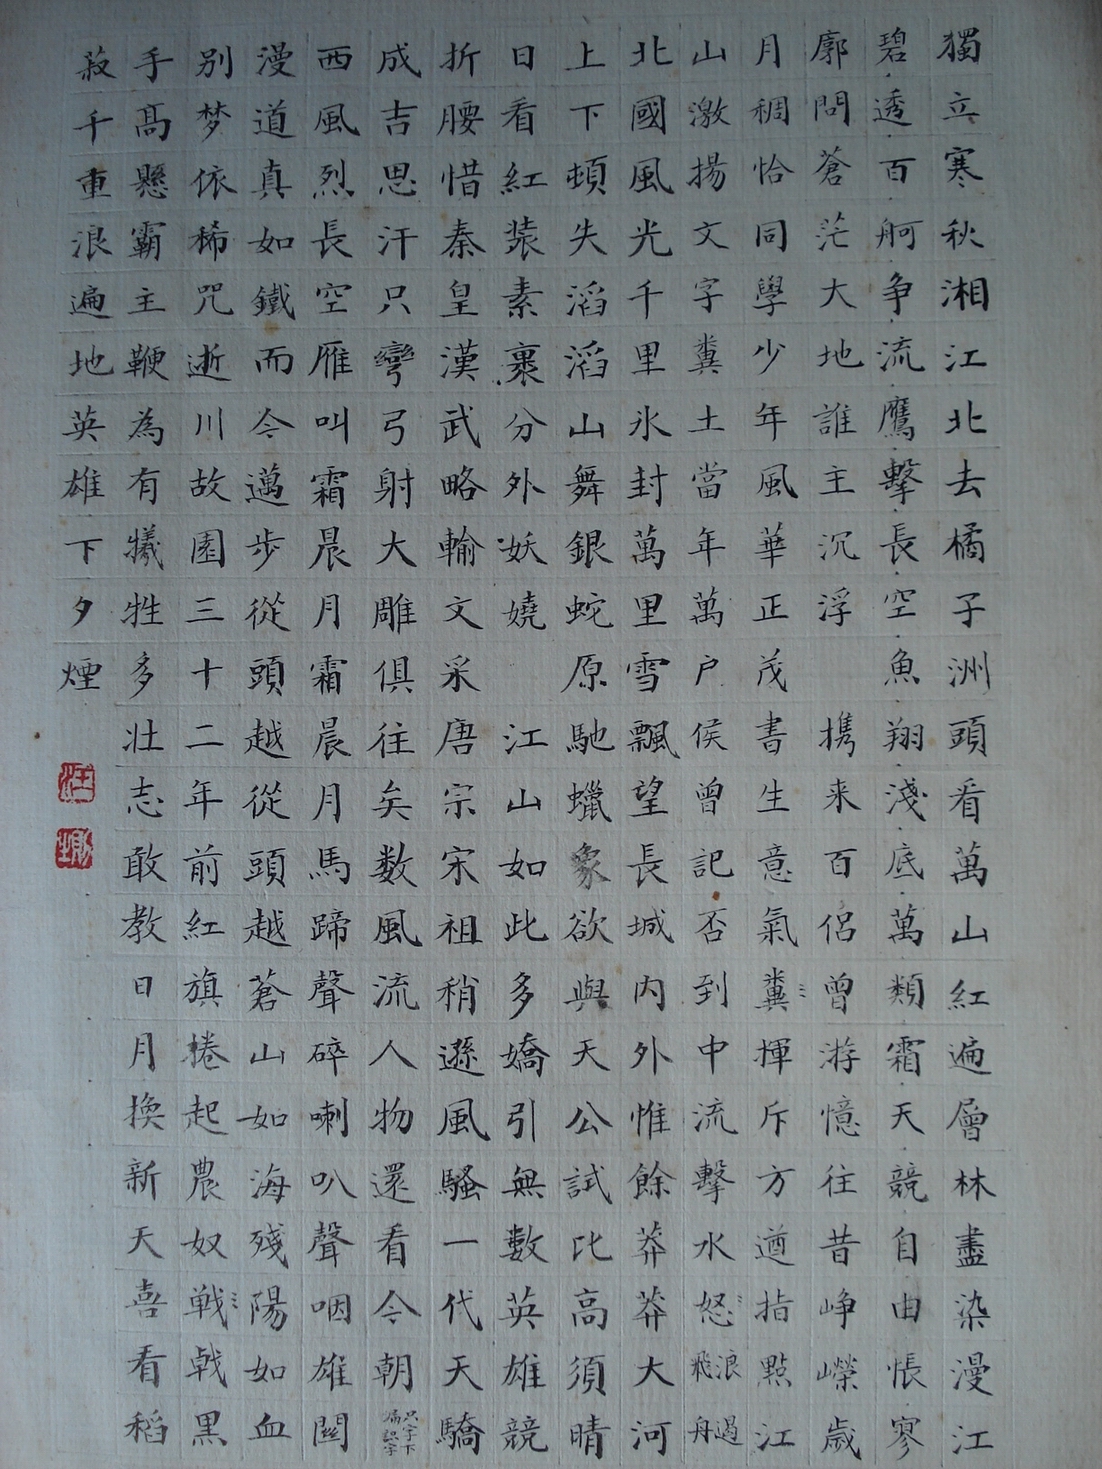 獨立寒秋湘江北去橘子洲頭看萬山紅遍層林盡染漫江
碧透百舸争流鷹擊長空魚翔淺底萬類霜天競自由悵寥
廓問蒼茫大地誰主沉浮 携来百侣曾游憶往昔峥嶸歲
月稠恰同學少年風華正茂書生意氣糞揮斥方遒指點江
山激揚文字糞土當年萬户侯曾記否到中流擊水怒浪過飛舟
北國風光千里氷封萬里雪飄望長城内外惟餘莽莽大河
上下頓失滔滔山舞銀蛇原馳蠟象欲與天公試比高須晴
日看紅裝素裹分外妖嬈 江山如此多嬌引無數英雄競
折腰惜秦皇漢武略輸文采唐宗宋祖稍遜風騷一代天驕
成吉思汗只彎弓射大雕俱往矣数風流人物還看今朝只字下漏識字
西風烈長空雁叫霜晨月霜晨月馬蹄聲碎喇叭聲咽雄關
漫道真如鐵而今邁步從頭越從頭越蒼山如海殘陽如血
别梦依稀咒逝川故園三十二年前紅旗捲起農奴戦戟黑
手高懸霸主鞭為有犧牲多壯志敢教日月換新天喜看稻
菽千重浪遍地英雄下夕煙